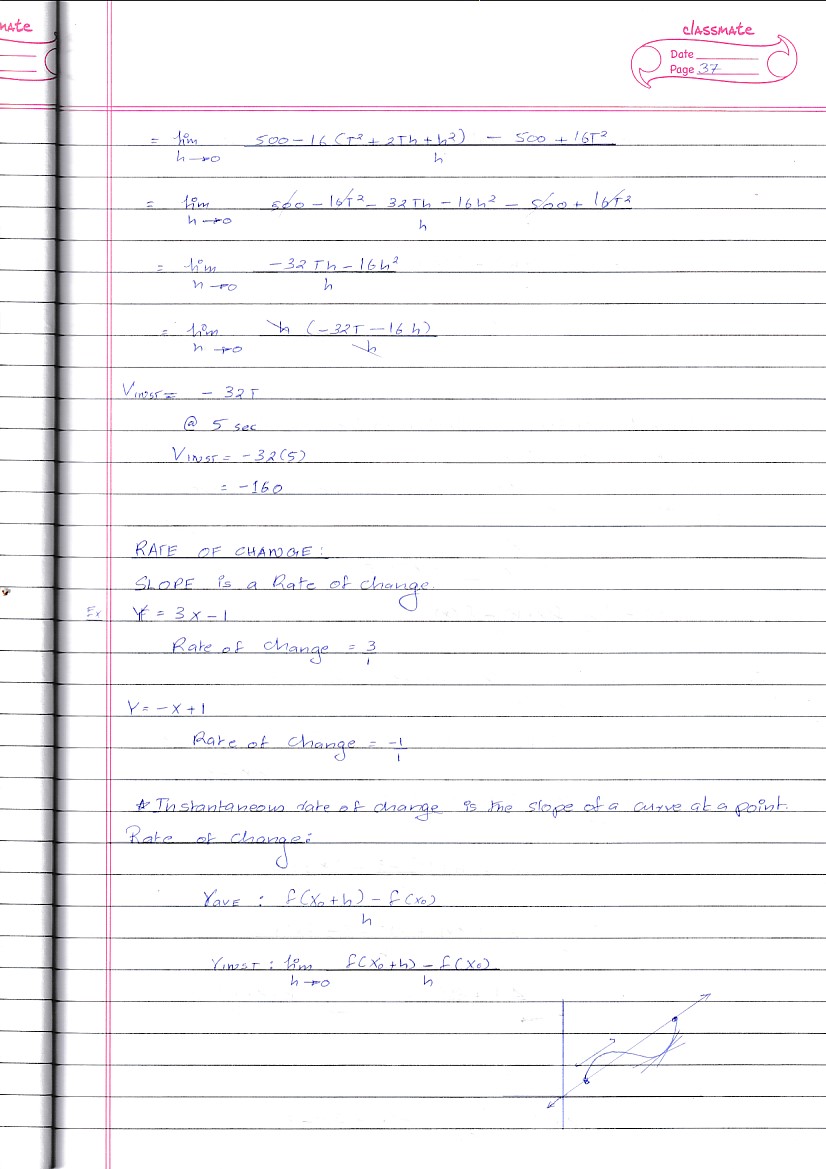 mate
classmate
Date
Page 37
= lim h→0 500 - 16 (T² + 2Th + h²) - 500 + 16T² / h
= lim h→0 500 - 16T² - 32Th - 16h² - 500 + 16T² / h
= lim h→0 -32Th - 16h² / h
= lim h→0 h (-32T - 16h) / h
VINST = - 32T
@ 5 sec
VINST = -32(5)
= -160
RATE OF CHANGE:
SLOPE is a Rate of change.
Ex Y = 3x - 1
Rate of change = 3/1
Y = -x + 1
Rate of change = -1/1
* Instantaneous rate of change is the slope of a curve at a point.
Rate of change:
YAVE : f(x₀ + h) - f(x₀) / h
YINST : lim h→0 f(x₀ + h) - f(x₀) / h